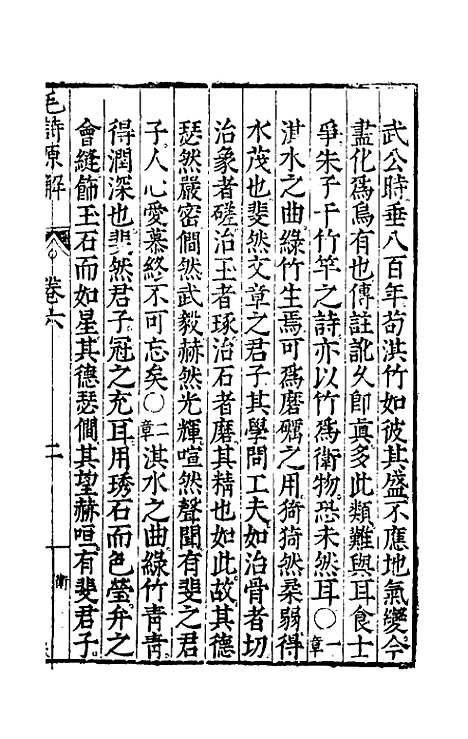 武公時垂八百年苟淇竹如彼其盛不應地氣變今
盡化爲烏有也傳註訛久卽眞多此類難與耳食士
爭朱子于竹竿之詩亦以竹爲衞物恐未然耳〇一章
淇水之曲綠竹生焉可爲磨礪之用猗猗然柔弱得
水茂也斐然文章之君子其學問工夫如治骨者切
治象者磋治玉者琢治石者磨其精也如此故其德
瑟然嚴密僩然武毅赫然光輝喧然聲聞有斐之君
子人心愛慕終不可忘矣〇二章淇水之曲綠竹靑靑
得潤深也斐然君子冠之充耳用琇石而色瑩弁之
會縫飾玉石而如星其德瑟僩其望赫咺有斐君子
毛詩原解
卷六
二
衛